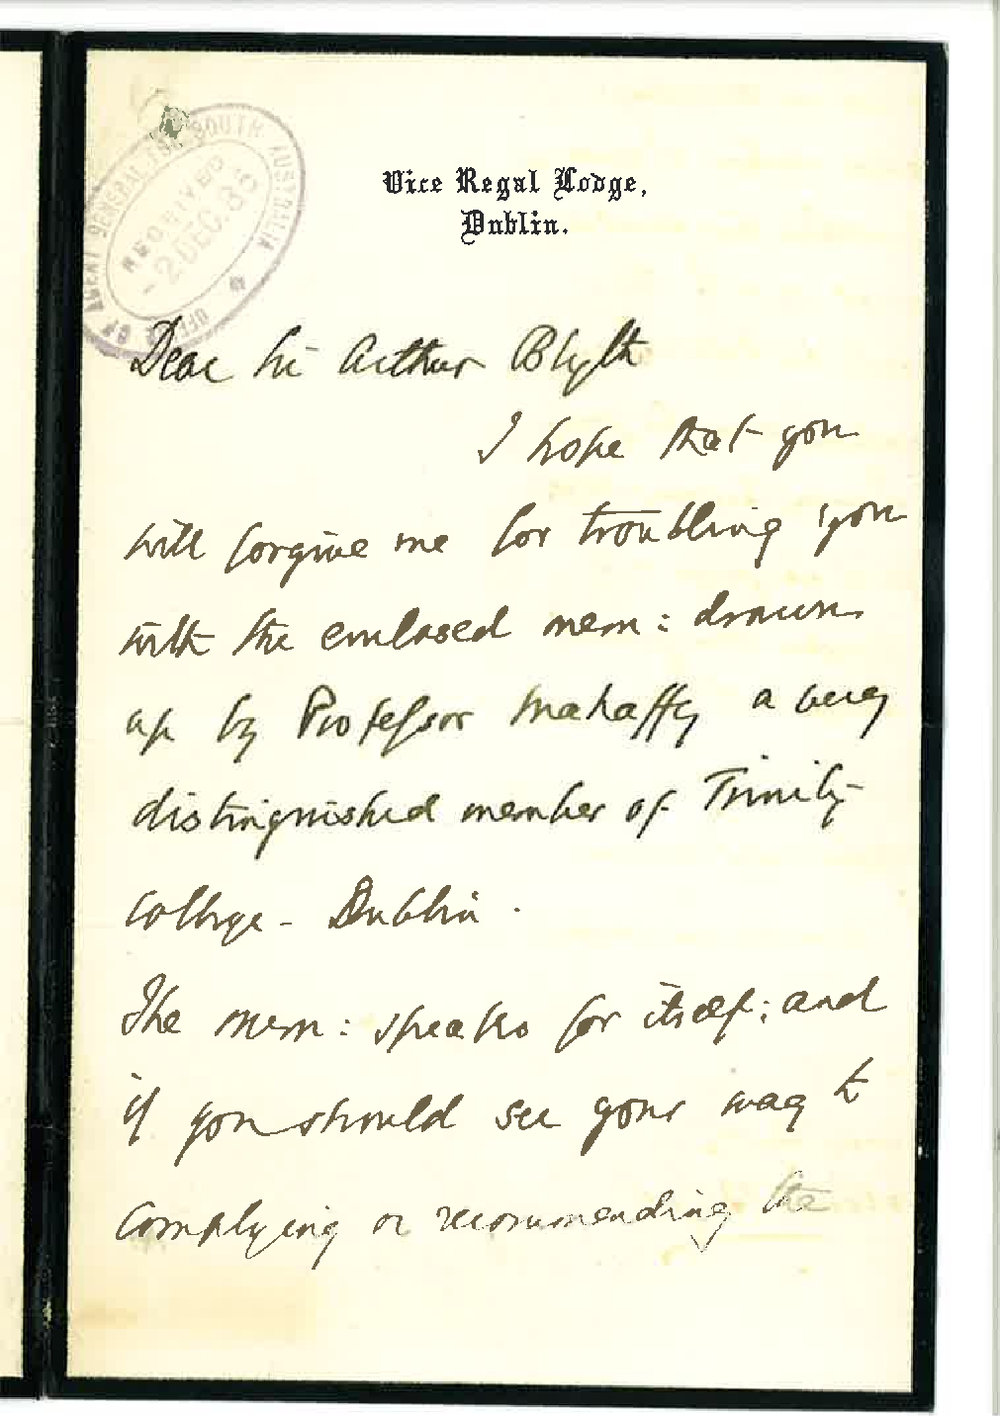 OFFICE OF AGENT GENERAL FOR SOUTH AUSTRALIA
RECEIVED
-2.DEC.86
Vice Regal Lodge,
Dublin.
Dear Sir Arthur Blyth
I hope that you
will forgive me for troubling you
with the enclosed mem: drawn
up by Professor Mahaffy a very
distinguished member of Trinity
College - Dublin.
The mem: speaks for itself; and
if you should see your way to
complying or recommending the